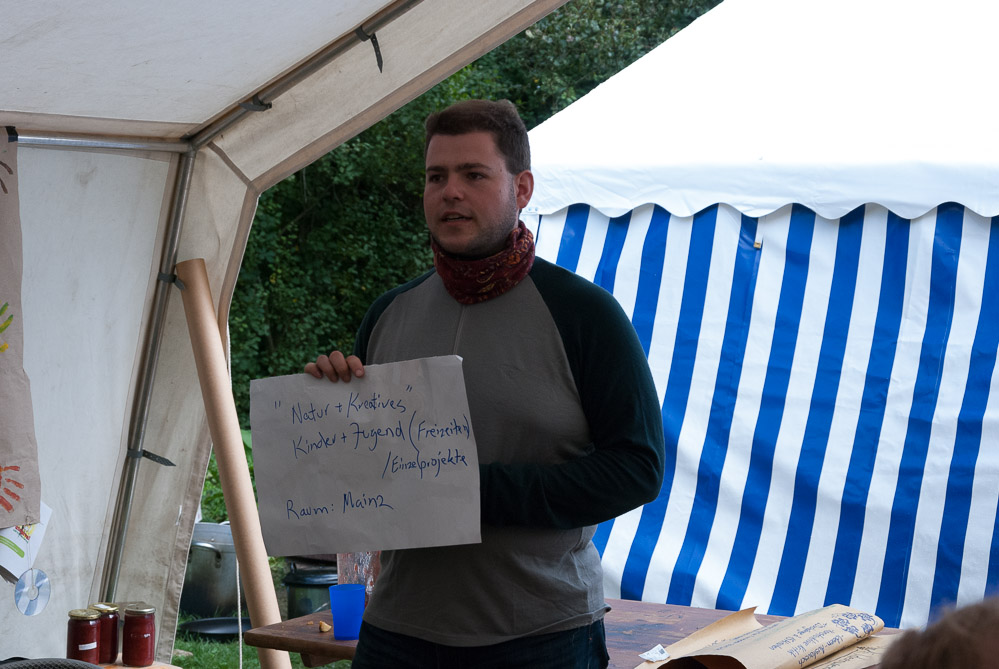 "Natur + Kreatives"
Kinder + Jugend (Freizeiten)
/Einzelprojekte
Raum: Mainz